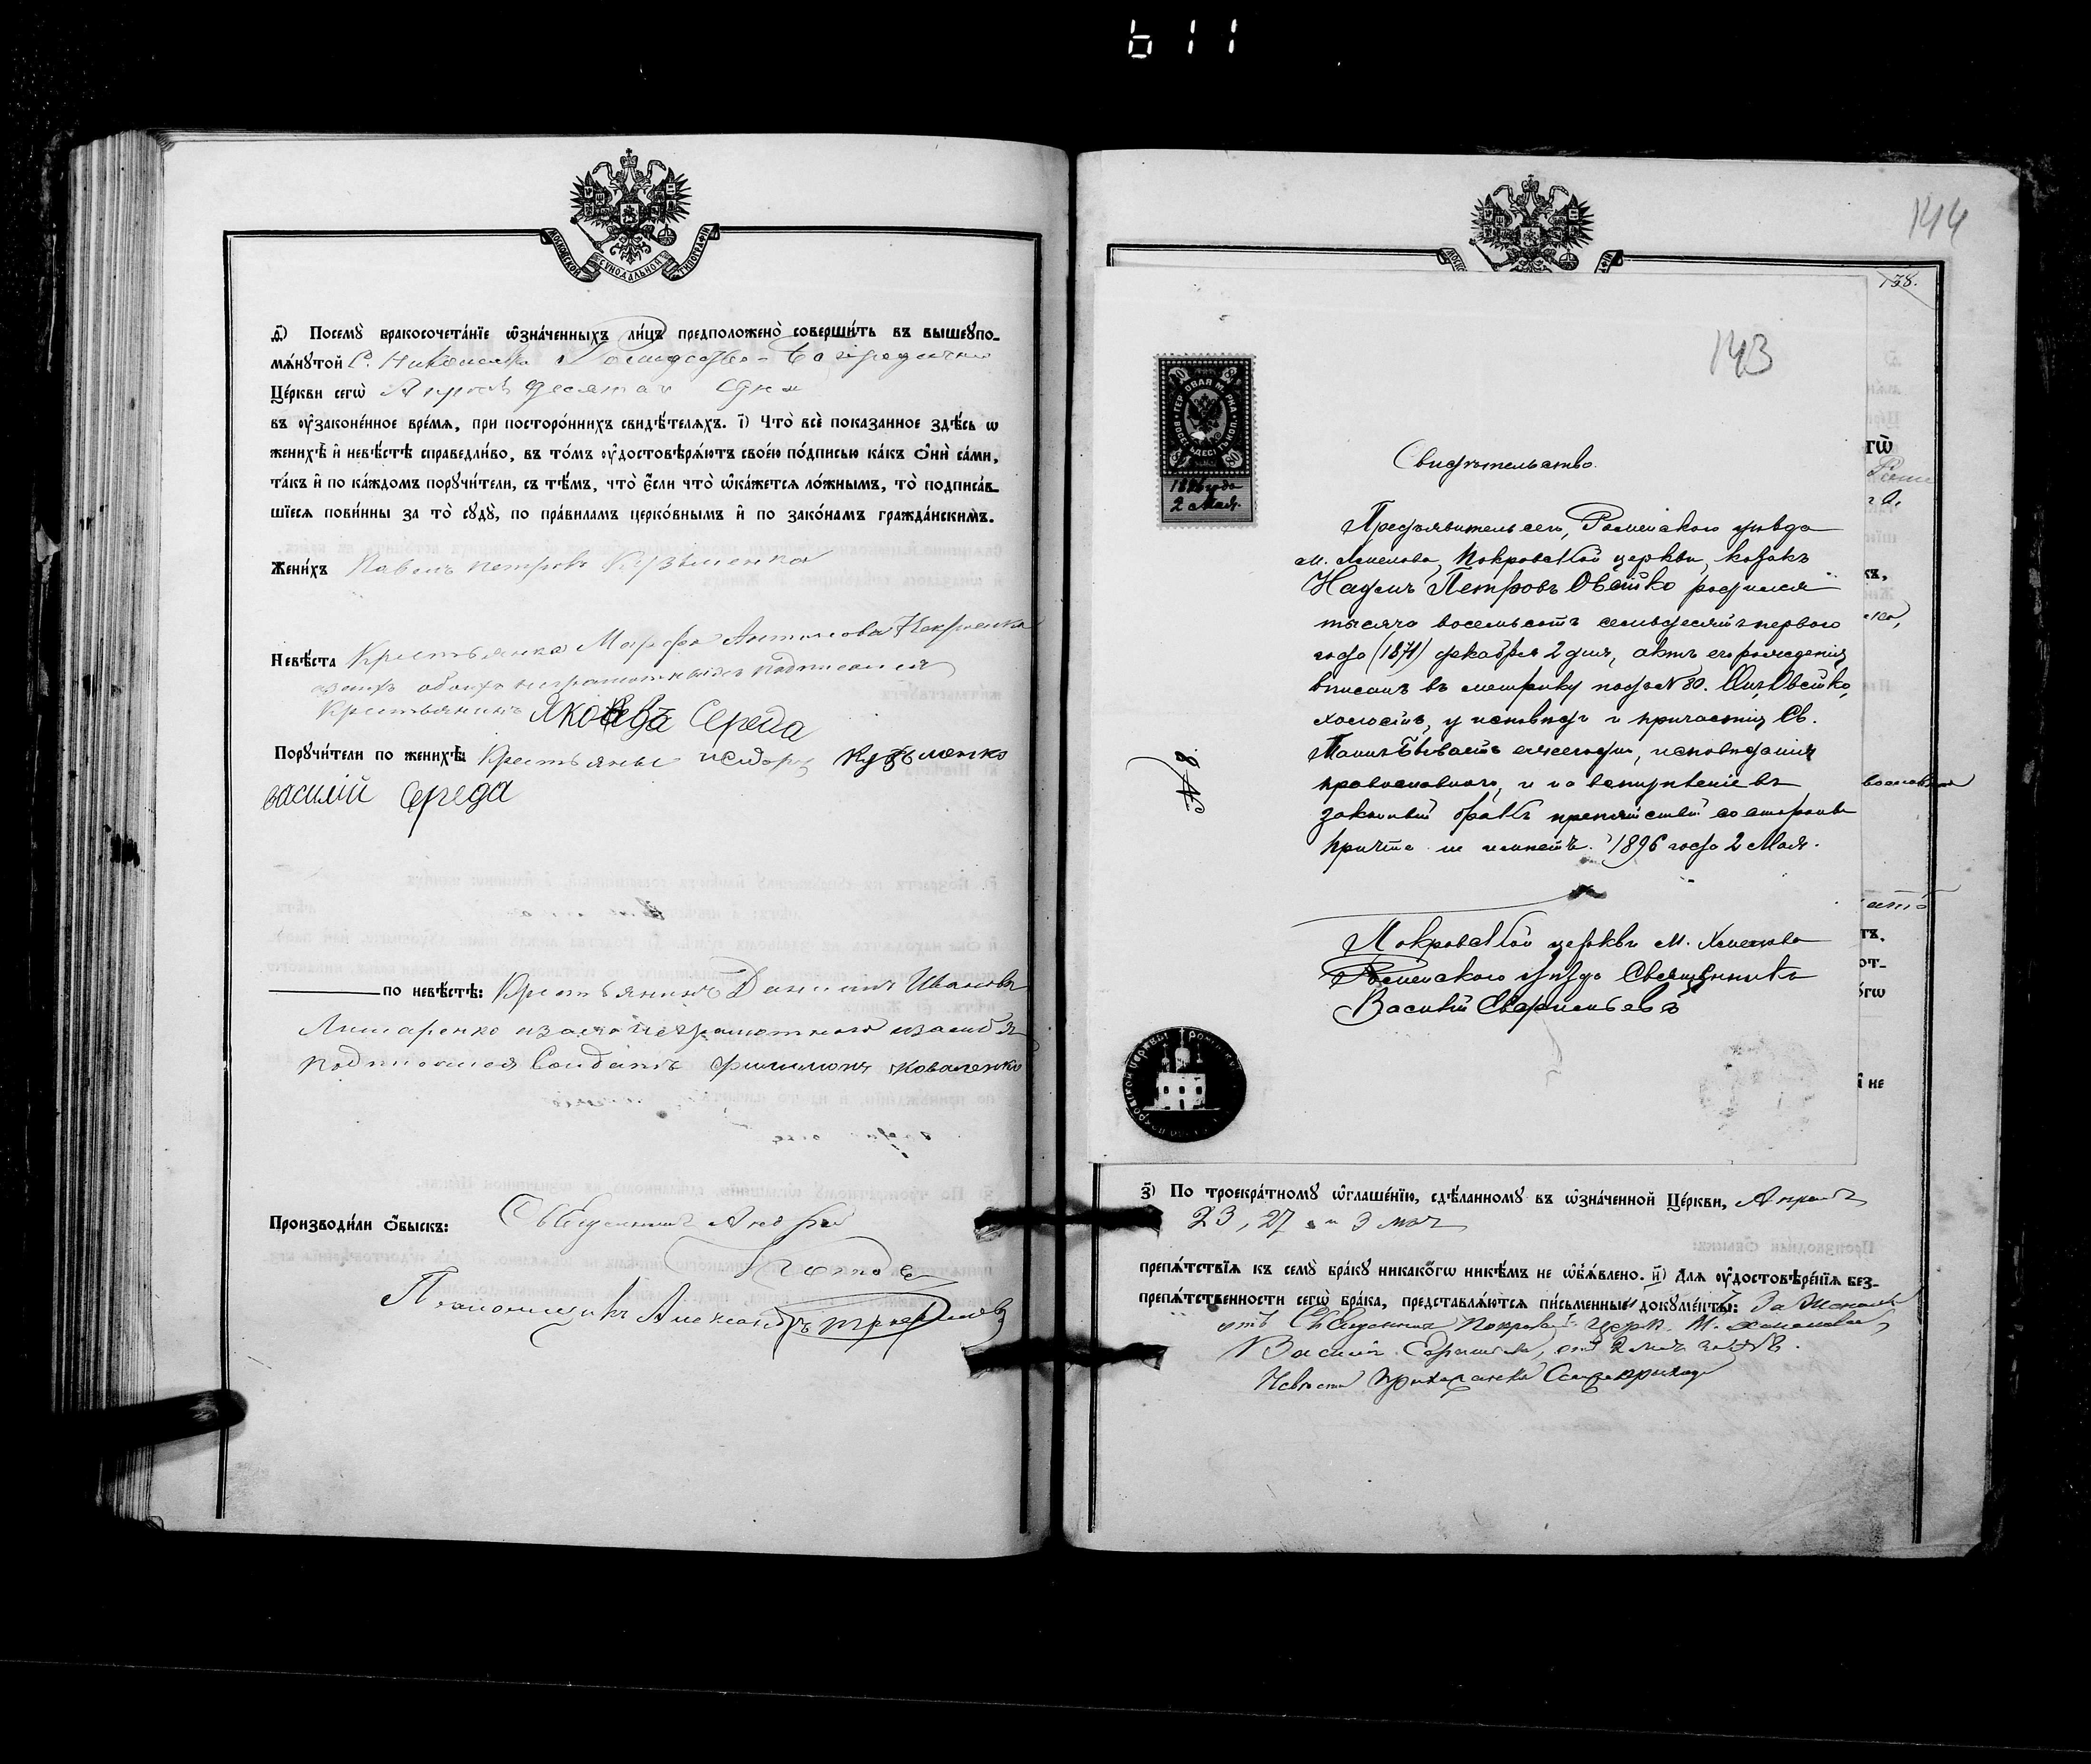 611
МОСКОВСКОЙ СУНОДАЛЬНОЙ ТИПОГРАФІИ
д҃) Посемꙋ̀ бракосочета́нїе ѡ҆зна́ченныхъ ли́цъ предположено̀ соверши́ть въ вышеꙋпо-
мѧ́нꙋтой С. Рождество-Богородичной
Це́ркви сегѡ̀ Апрѣля десятаго дня
въ ᲂу҆законе́нное вре́мѧ, при посторо́ннихъ свидѣ́телѧхъ. і҃) Что̀ всѐ показанное здѣ́сь ѡ
женихѣ̀ и҆ невѣ́стѣ справедли́во, въ то́мъ ᲂу҆достовѣрѧ́ютъ свое́ю по́дписью ка́къ ѻ҆нѝ са́ми,
та́къ и҆ по ка́ждомъ порꙋчи́тели, съ тѣ́мъ, что̀ є҆́сли что̀ ѡ҆ка́жетсѧ ло́жнымъ, то̀ подписа́в-
шїесѧ пови́нны за то̀ сꙋдꙋ̀, по пра́виламъ церко́внымъ и҆ по зако́намъ гражда́нскимъ.
Жени́хъ Павелъ Петровъ Кузьменко
Невѣ́ста Крестьянка Марфа Антонова
а за нихъ обоихъ неграмотныхъ подписался
Крестьянинъ Яковъ Середа
Порꙋчи́тели по женихѣ̀: Крестьяне исидоръ Кузьменко
василій Середа
по невѣ́стѣ: Крестьянинъ Даніилъ Ивановъ
Лишаренко а за него неграмотного и за себя
подписался Солдатъ филимонъ коваленко
Производи́ли ѻ҆́быскъ: Священникъ Андрей
Псаломщикъ Александръ
144
138.
143
ГЕРБОВАЯ МАРКА ВОСЕМЬДЕСЯТЪ КОП. 80
1896 года
2 Мая.
Свидѣтельство.
Предъявитель сего, Роменского уѣзда
м. Хмелова, Покровской церкви, козакъ
Наумъ Петровъ Овсійко родился
тысяча восемьсотъ семьдесятъ первого
года (1871) декабря 2 дня, актъ его рожденія
вписанъ въ метрику подъ № 80. Онъ Овсійко,
холостъ, у исповѣди и причастія Св.
Таинъ бываетъ ежегодно, исповѣданія
православного, и на вступленіе въ
законный бракъ препятствій со стороны
причта не имѣетъ. 1896 года 2 Мая.
№ 8.
Покровской церкви м. Хмелова
Роменского уѣзда Священникъ
Василій
гѡ̀
з҃) По троекра́тномꙋ ѡ҆глаше́нїю, сдѣ́ланномꙋ въ ѡ҆зна́ченной Це́ркви, Апрѣля
23, 27 и 3 мая
препѧ́тствїѧ къ семꙋ̀ бра́кꙋ никако́гѡ никѣ́мъ не ѡ҆б̾ѧ́влено. и҃) Длѧ ᲂу҆достовѣре́нїѧ без-
препѧ́тственности сегѡ̀ бра́ка, представлѧ́ютсѧ пи́сьменные докꙋме́нты: За Жениха
отъ Священника Покров. церк. м. Хмелова,
Василія
Невѣста прихожанка Сего прихода